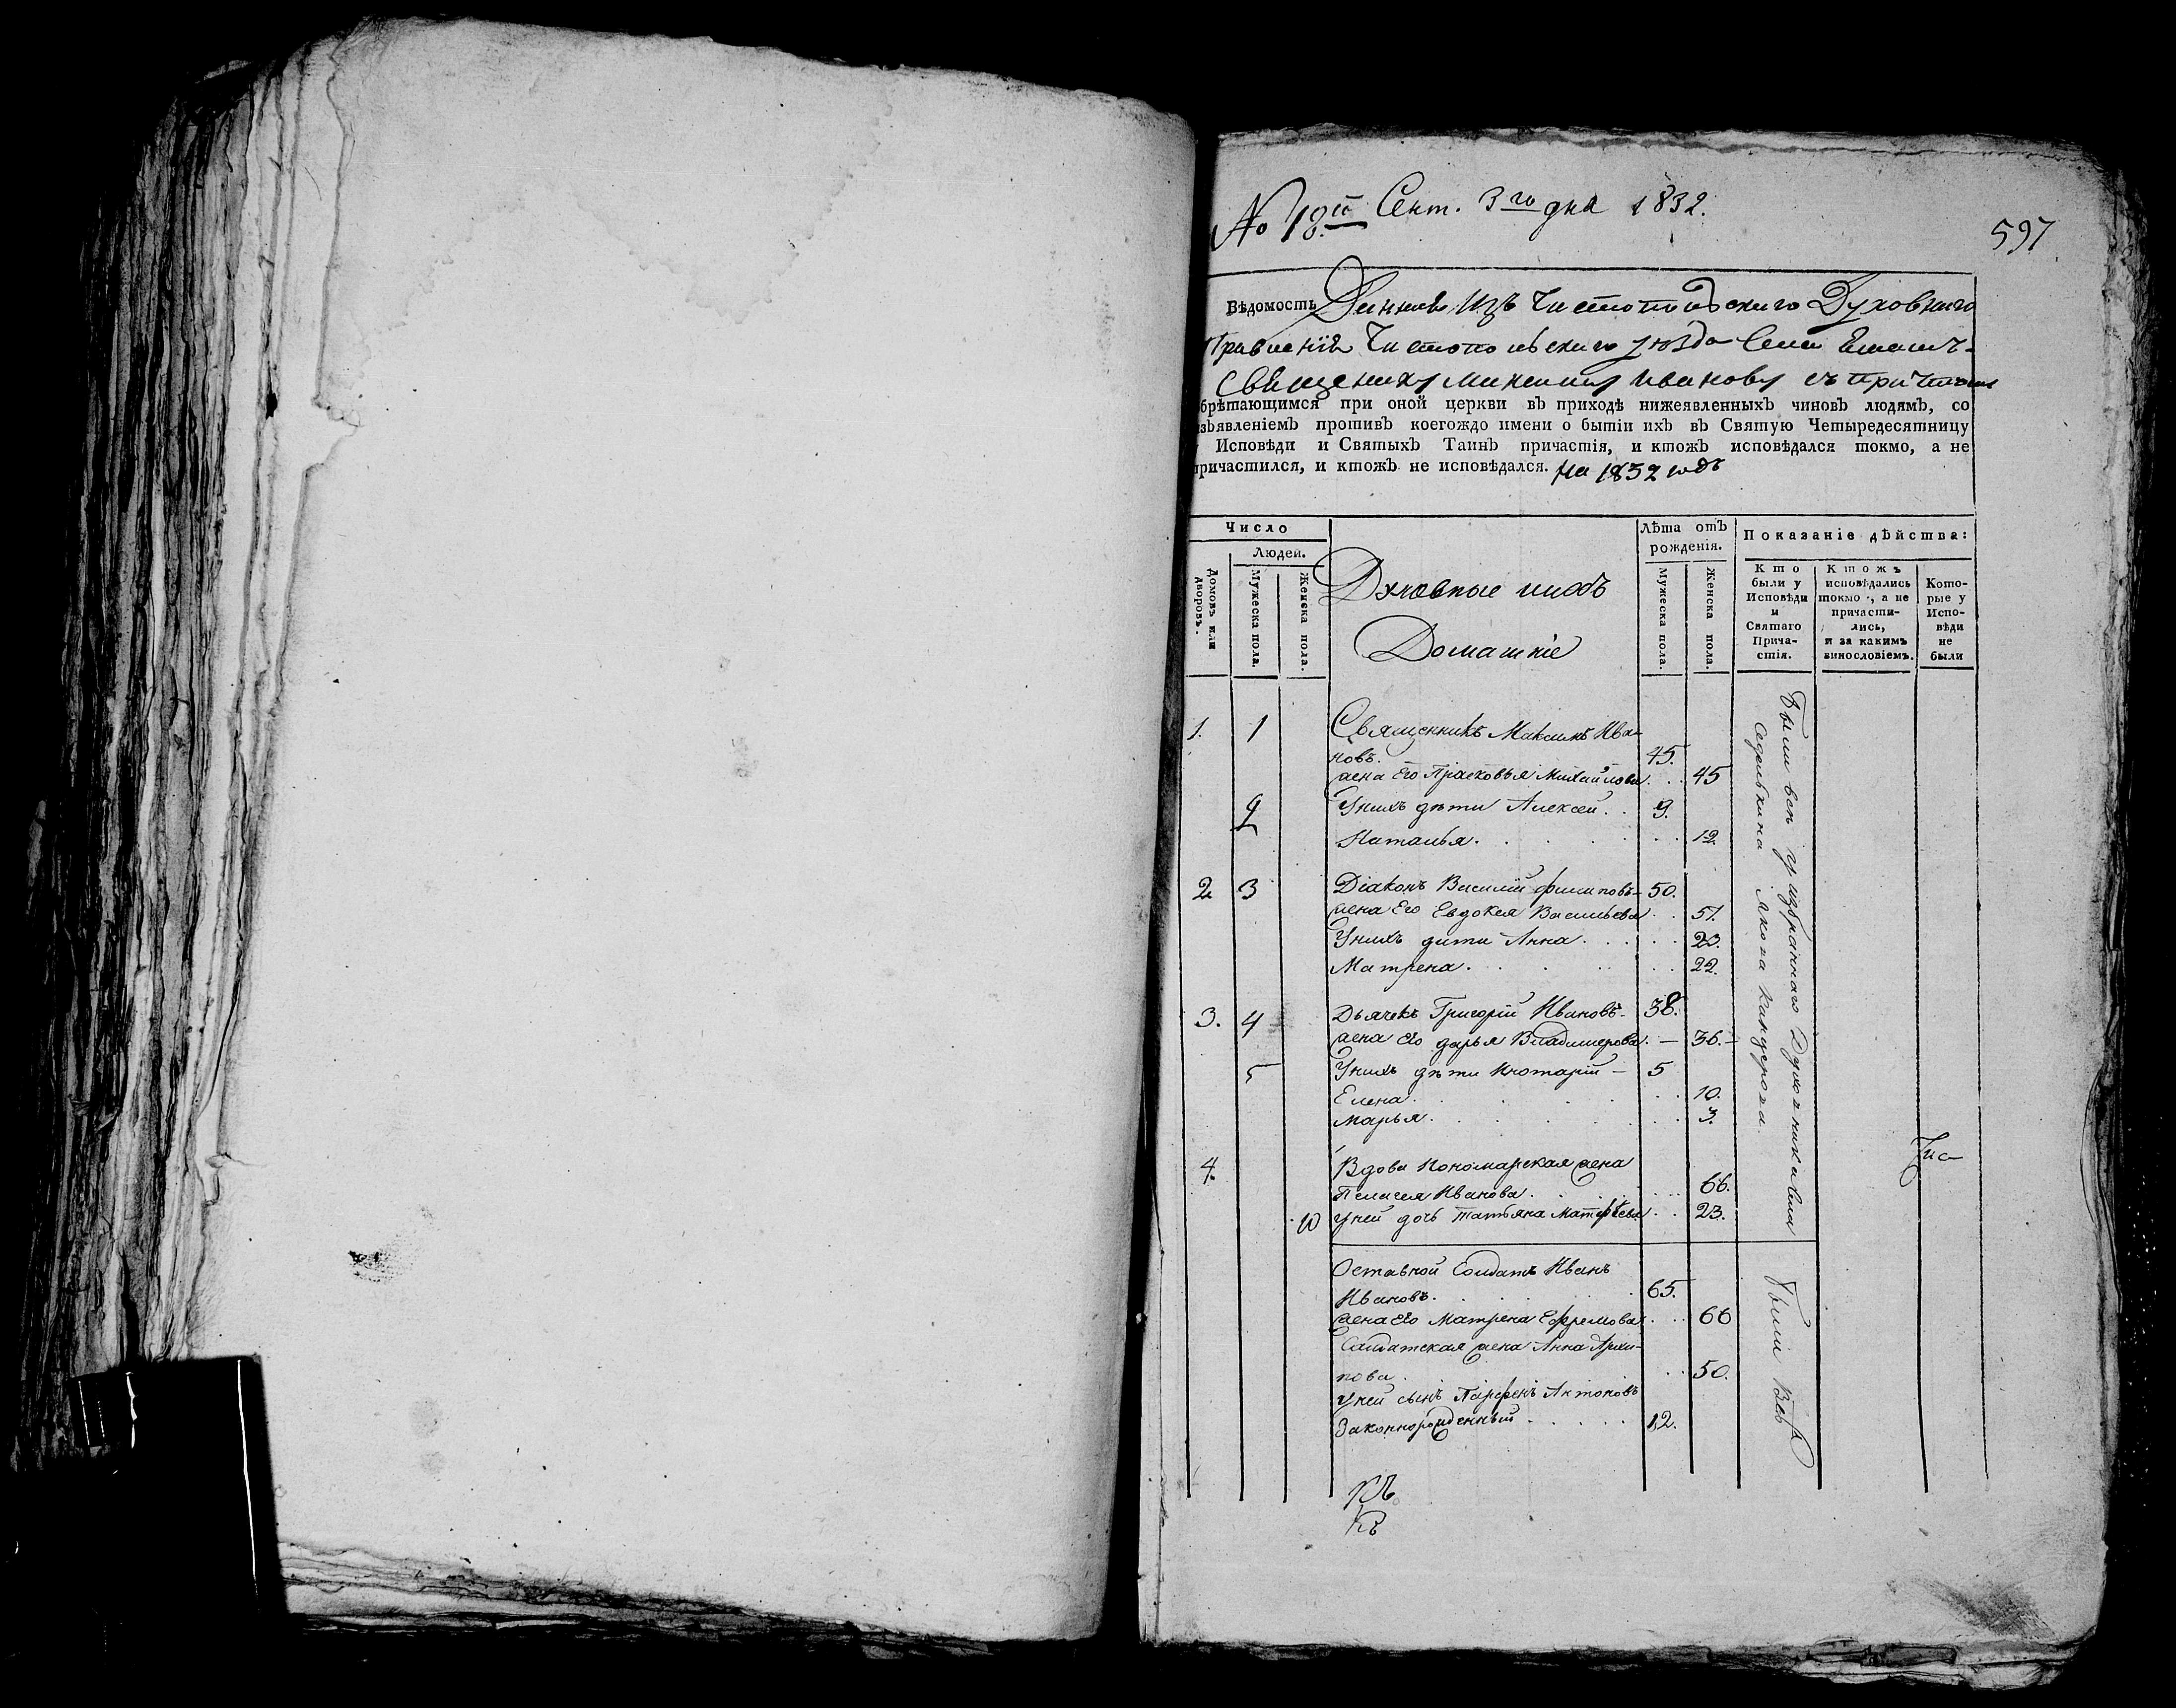 No 18й Сент. 3го дня 1832.
597
Вѣдомость Данная изъ Чистопольскаго Духовнаго
Правленія Чистопольскаго уѣзда Села
Священнику Максиму Иванову съ причтомъ
брѣтающимся при оной церкви въ приходѣ нижеявленныхъ чиновъ людямъ, со
изъявленіемъ противъ коегождо имени о бытіи ихъ въ Святую Четыредесятницу
Исповѣди и Святыхъ Таинъ причастія, и ктожъ исповѣдался токмо, а не
причастился, и ктожъ не исповѣдался. На 1832 годъ
Число
Людей.
Домовъ или дворовъ.
Мужеска пола.
Женска пола.
Духовные
Домашніе
Лѣта отъ рожденія.
Мужеска пола.
Женска пола.
Показаніе дѣйства:
Кто были у Исповѣди и Святаго Причастія.
Ктожъ исповѣдались токмо, а не причастились, и за какимъ винословіемъ.
Которые у Исповѣди не были
1. 1 Священникъ Максимъ Ива-
новъ. 45.
жена Его Прасковья Михайлова 45
2 У нихъ дѣти Алексей 9.
Наталья. 12
2 3 Діаконъ Василій Филиповъ 50.
жена Его Евдокея Васильева 51.
У нихъ дѣти Анна 23.
Матрена. 22.
3. 4 Дьячекъ Григорій Ивановъ 38.
жена Его Дарья Владимерова 36.
5 У нихъ дѣти 5
Елена 10.
Марья 3.
4. Вдова Пономарская жена
Пелагея Иванова. 66.
10 У ней дочь Татьяна Матфѣева 23.
Были всѣ у избраннаго Духовника
Якова
Оставной Солдатъ Иванъ
Ивановъ. 65.
жена Его Матрена Ефремова 66
Салдатская жена Анна Архи-
пова. 50.
У ней сынъ Парфенъ Антоновъ
Законнорожденный 12.
Были Всѣ
Къ
Къ